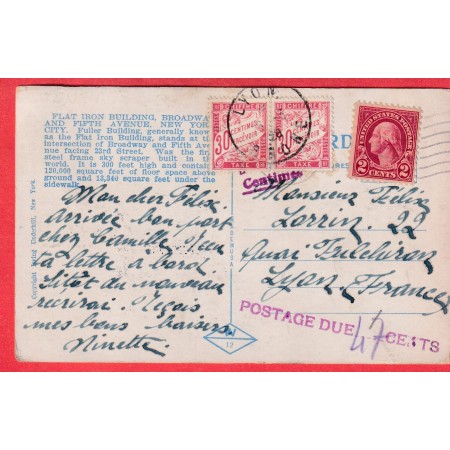 FLAT IRON BUILDING, BROADWAY
AND FIFTH AVENUE, NEW YORK
CITY. Fuller Building, generally know
as the Flat Iron Building, stands at t
intersection of Broadway and Fifth Ave
nue facing 23rd Street. Was the fir
steel frame sky scraper built in t
world. It is 300 feet high and contain
120,000 square feet of floor space above
ground and 12,240 square feet under the
sidewalk.
Copyright Irving Underhill, New York.
Mon cher Félix
arrivée bon port
chez Camille. Reçu
ta lettre à bord
sitôt du nouveau
récrirai. Reçois
mes bons baisers
Ninette.
CHIFFRES
30
CENTIMES
A PERCEVOIR
TAXE
CHIFFRES
30
TAXE
LYON
Centimes
UNITED STATES POSTAGE
2 CENTS 2
RD
Monsieur Félix
Lorrin. 22
Quai Fulchiron
Lyon. France
POSTAGE DUE 47 CENTS
12